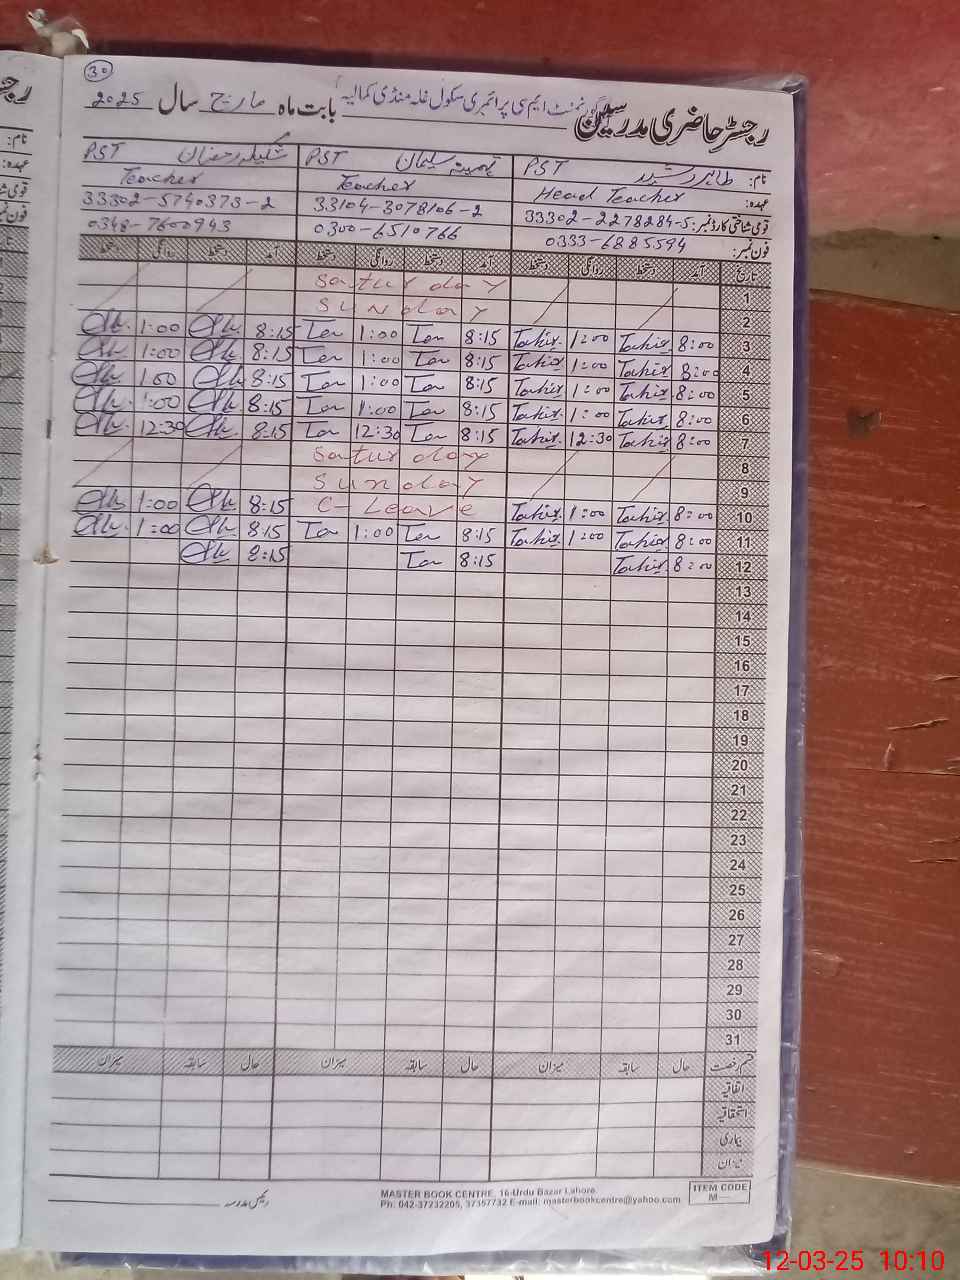 30
رجسٹر حاضری مدرسین گورنمنٹ ایم سی پرائمری سکول غلہ منڈی کمالیہ بابت ماہ مارچ سال 2025
نام: طاہر رشید PST سلیمان PST PST
عہدہ: Head Teacher Teacher Teacher
قومی شناختی کارڈ نمبر: 33302-2278284-5 33104-3078106-2 33302-5740373-2
فون نمبر: 0333-6885594 0300-6510766 0348-7600943
تاریخ آمد دستخط روانگی دستخط آمد دستخط روانگی دستخط آمد دستخط روانگی دستخط
1 Saturday
2 Sunday
3 8:00 Tahir 1:00 Tahir 8:15 1:00 8:15 1:00
4 8:00 Tahir 1:00 Tahir 8:15 1:00 8:15 1:00
5 8:00 Tahir 1:00 Tahir 8:15 1:00 8:15 1:00
6 8:00 Tahir 1:00 Tahir 8:15 1:00 8:15 1:00
7 8:00 Tahir 12:30 Tahir 8:15 12:30 8:15 12:30
8 Saturday
9 Sunday
10 8:00 Tahir 1:00 Tahir C-Leave 8:15 1:00
11 8:00 Tahir 1:00 Tahir 8:15 1:00 8:15 1:00
12 8:00 Tahir 8:15 8:15
13
14
15
16
17
18
19
20
21
22
23
24
25
26
27
28
29
30
31
قسم رخصت حال سابقہ میزان حال سابقہ میزان حال سابقہ میزان
اتفاقیہ
استحقاقیہ
بیماری
میزان
رئیس مدرسہ
MASTER BOOK CENTRE, 16-Urdu Bazar Lahore.
Ph: 042-37232205, 37357732 E-mail: masterbookcentre@yahoo.com
ITEM CODE
M—
12-03-25 10:10